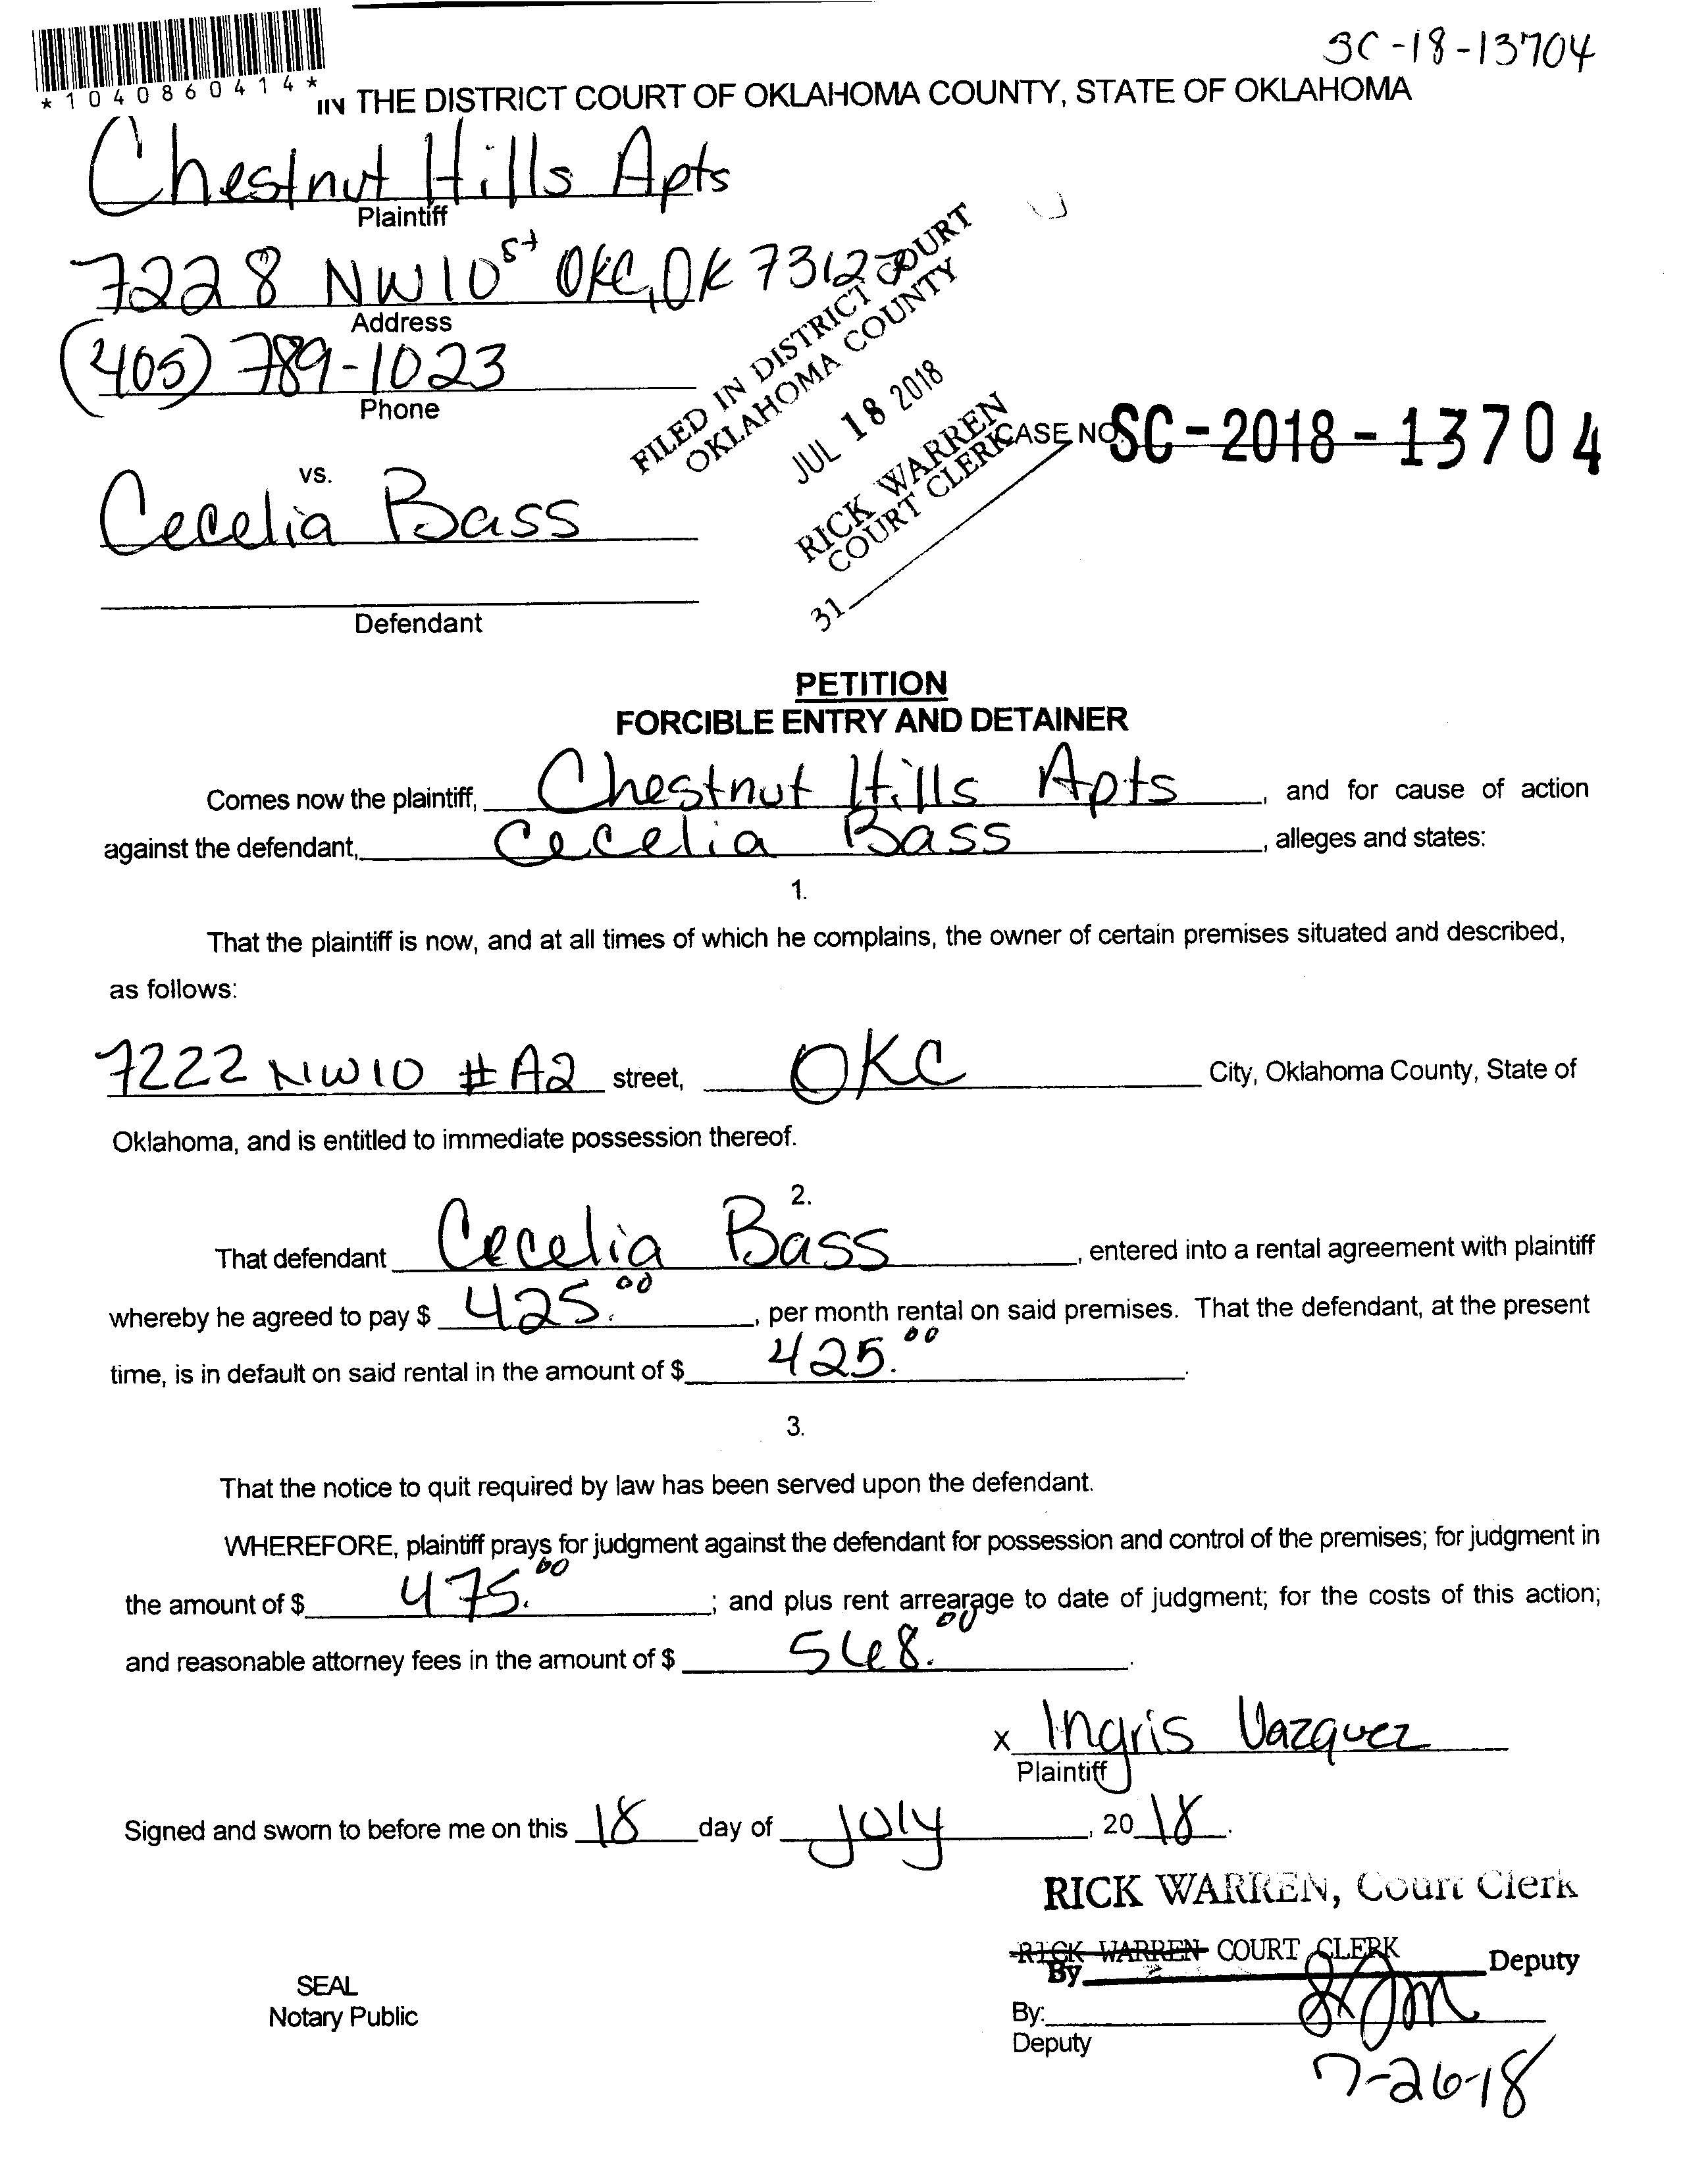 SC-18-13704
*1040860414*
IN THE DISTRICT COURT OF OKLAHOMA COUNTY, STATE OF OKLAHOMA
Chestnut Hills Apts
Plaintiff
7228 NW 10 St OKC, OK 7312
Address
(405) 789-1023
Phone
FILED IN DISTRICT COURT
OKLAHOMA COUNTY
JUL 18 2018
RICK WARREN
COURT CLERK
31
CASE NO. SC-2018-13704
vs.
Cecelia Bass
Defendant
PETITION
FORCIBLE ENTRY AND DETAINER
Comes now the plaintiff, Chestnut Hills Apts, and for cause of action
against the defendant, Cecelia Bass, alleges and states:
1.
That the plaintiff is now, and at all times of which he complains, the owner of certain premises situated and described,
as follows:
7222 NW 10 #A2 street, OKC City, Oklahoma County, State of
Oklahoma, and is entitled to immediate possession thereof.
2.
That defendant Cecelia Bass, entered into a rental agreement with plaintiff
whereby he agreed to pay $ 425.00, per month rental on said premises. That the defendant, at the present
time, is in default on said rental in the amount of $ 425.00.
3.
That the notice to quit required by law has been served upon the defendant.
WHEREFORE, plaintiff prays for judgment against the defendant for possession and control of the premises; for judgment in
the amount of $ 475.00; and plus rent arrearage to date of judgment; for the costs of this action;
and reasonable attorney fees in the amount of $ 568.00.
x Ingris Vazquez
Plaintiff
Signed and sworn to before me on this 18 day of July, 2018.
RICK WARREN, Court Clerk
RICK WARREN COURT CLERK
By Deputy
SEAL
Notary Public
By:
Deputy
7-26-18